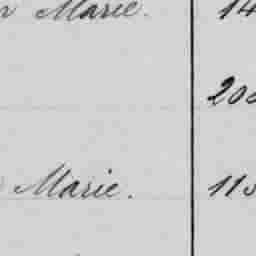 Marie. 14
200
Marie. 115